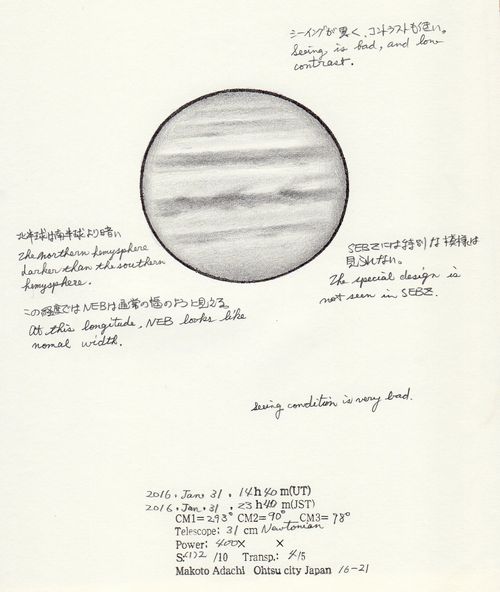 シーイングが悪く、コントラストも低い。
Seeing is bad, and low
contrast.
北半球は南半球より暗い
The northern hemysphere
darker than the southern
hemysphere.
SEBZには特別な模様は
見られない。
The special design is
not seen in SEBZ.
この経度ではNEBは通常の幅のように見える。
At this longitude, NEB looks like
nomal width.
seeing condition is very bad.
2016. Jan. 31. 14h40m(UT)
2016. Jan. 31. 23h40m(JST)
CM1=293° CM2=90° CM3=78°
Telescope: 31 cm Newtonian
Power: 400× ×
/10 Transp.: 4/5
Makoto Adachi Ohtsu city Japan 16-21